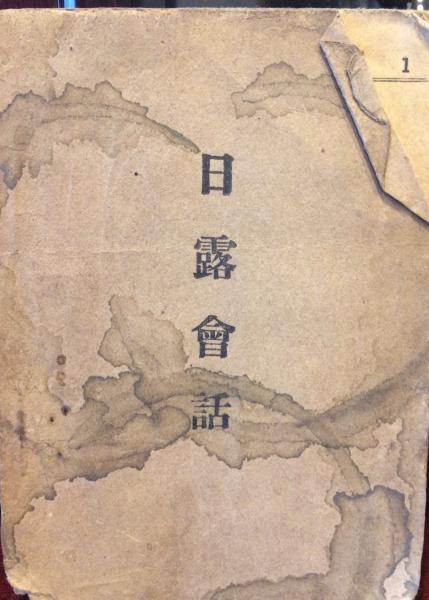 日露會話
1